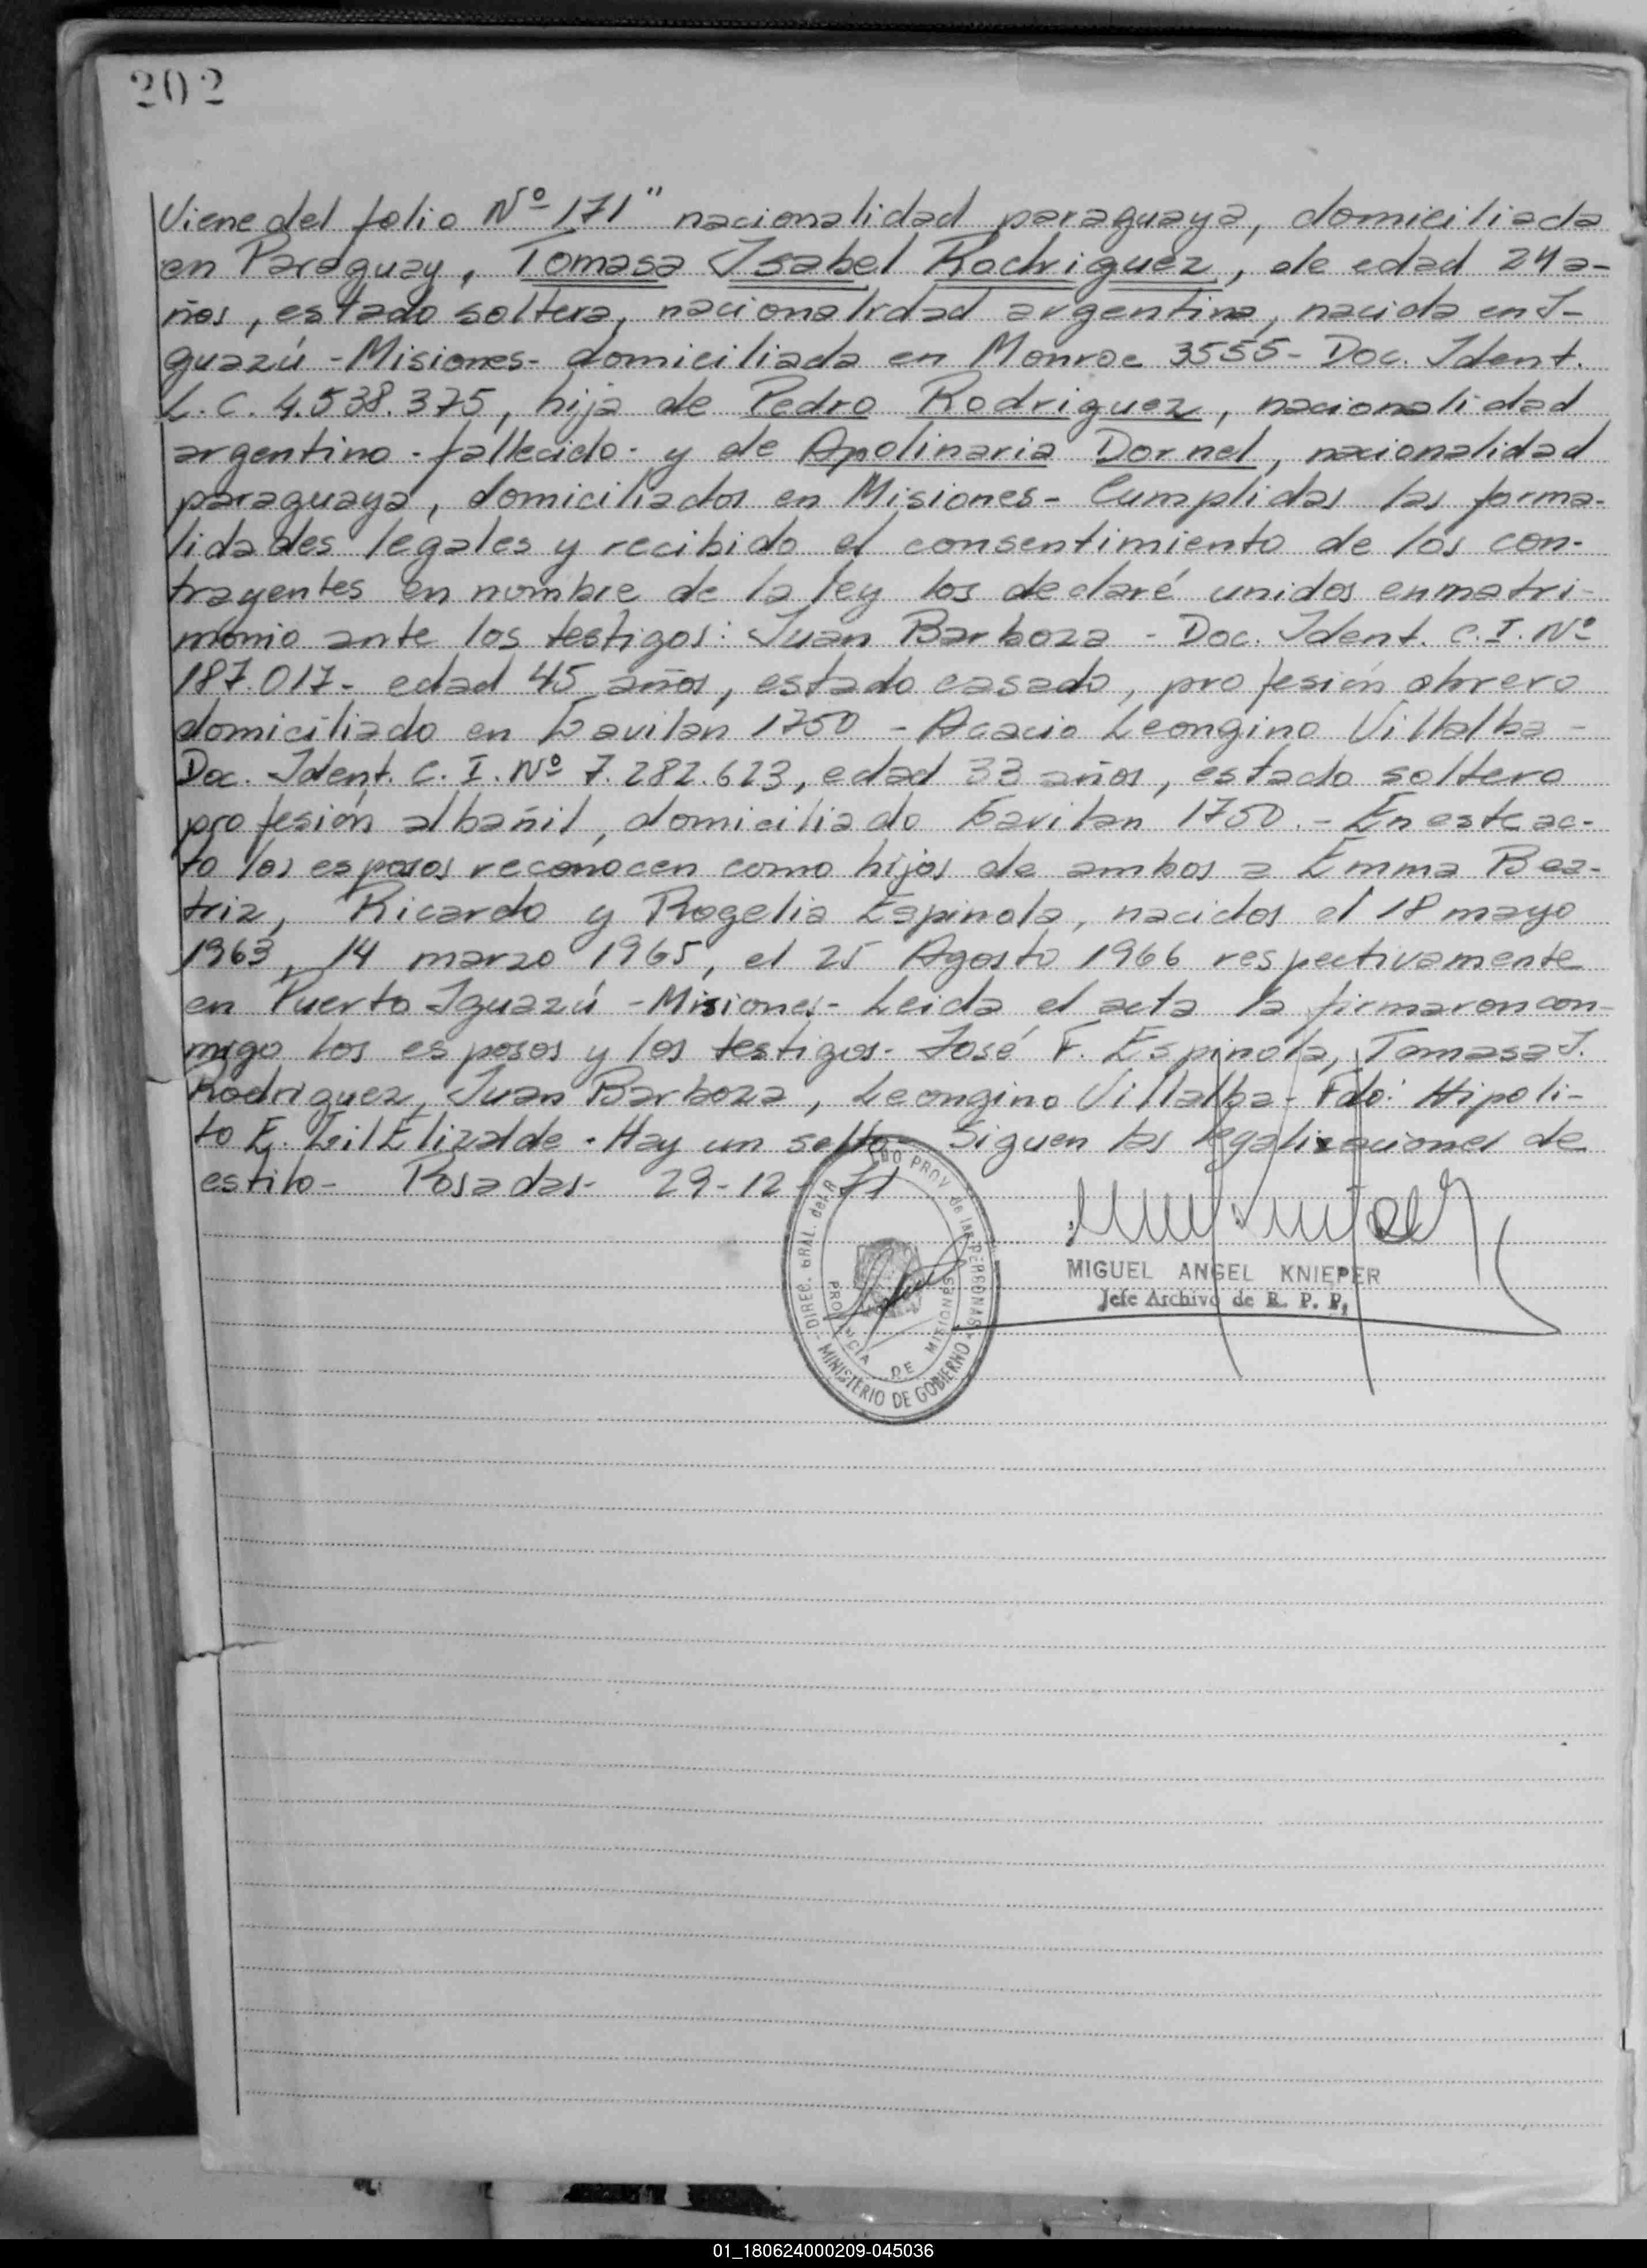 202
Viene del folio Nº 171" nacionalidad paraguaya, domiciliada
en Paraguay, Tomasa Isabel Rodriguez, de edad 24 a-
ños, estado soltera, nacionalidad argentina, nacida en I-
guazú - Misiones - domiciliada en Monroe 3555 - Doc. Ident.
L.C. 4.538.375, hija de Pedro Rodriguez, nacionalidad
argentino - fallecido - y de Apolinaria Dornel, nacionalidad
paraguaya, domiciliados en Misiones - Cumplidas las forma-
lidades legales y recibido el consentimiento de los con-
trayentes en nombre de la ley los declaré unidos en matri-
monio ante los testigos: Juan Barboza - Doc. Ident. C.I. Nº
187.017 - edad 45 años, estado casado, profesión obrero
domiciliado en Gavilan 1750 - Acacio Leongino Villalba -
Doc. Ident. C.I. Nº 7.282.623, edad 33 años, estado soltero
profesión albañil, domiciliado Gavilan 1750. - En este ac-
to los esposos reconocen como hijos de ambos a Emma Bea-
triz, Ricardo y Rogelia Espinola, nacidos el 18 mayo
1963, 14 marzo 1965, el 25 Agosto 1966 respectivamente
en Puerto Iguazú - Misiones - Leida el acta la firmaron con-
migo los esposos y los testigos - José F. Espinola, Tomasa I.
Rodriguez, Juan Barboza, Leongino Villalba - Fdo: Hipoli-
to E. Gil Elizalde - Hay un sello - Siguen las legalizaciones de
estilo - Posadas - 29-12-71
DIREC. GRAL. del R PROV. de las PERSONAS
PROVINCIA DE MISIONES
MINISTERIO DE GOBIERNO
MIGUEL ANGEL KNIEPER
Jefe Archivo de R. P. P.
01_180624000209-045036